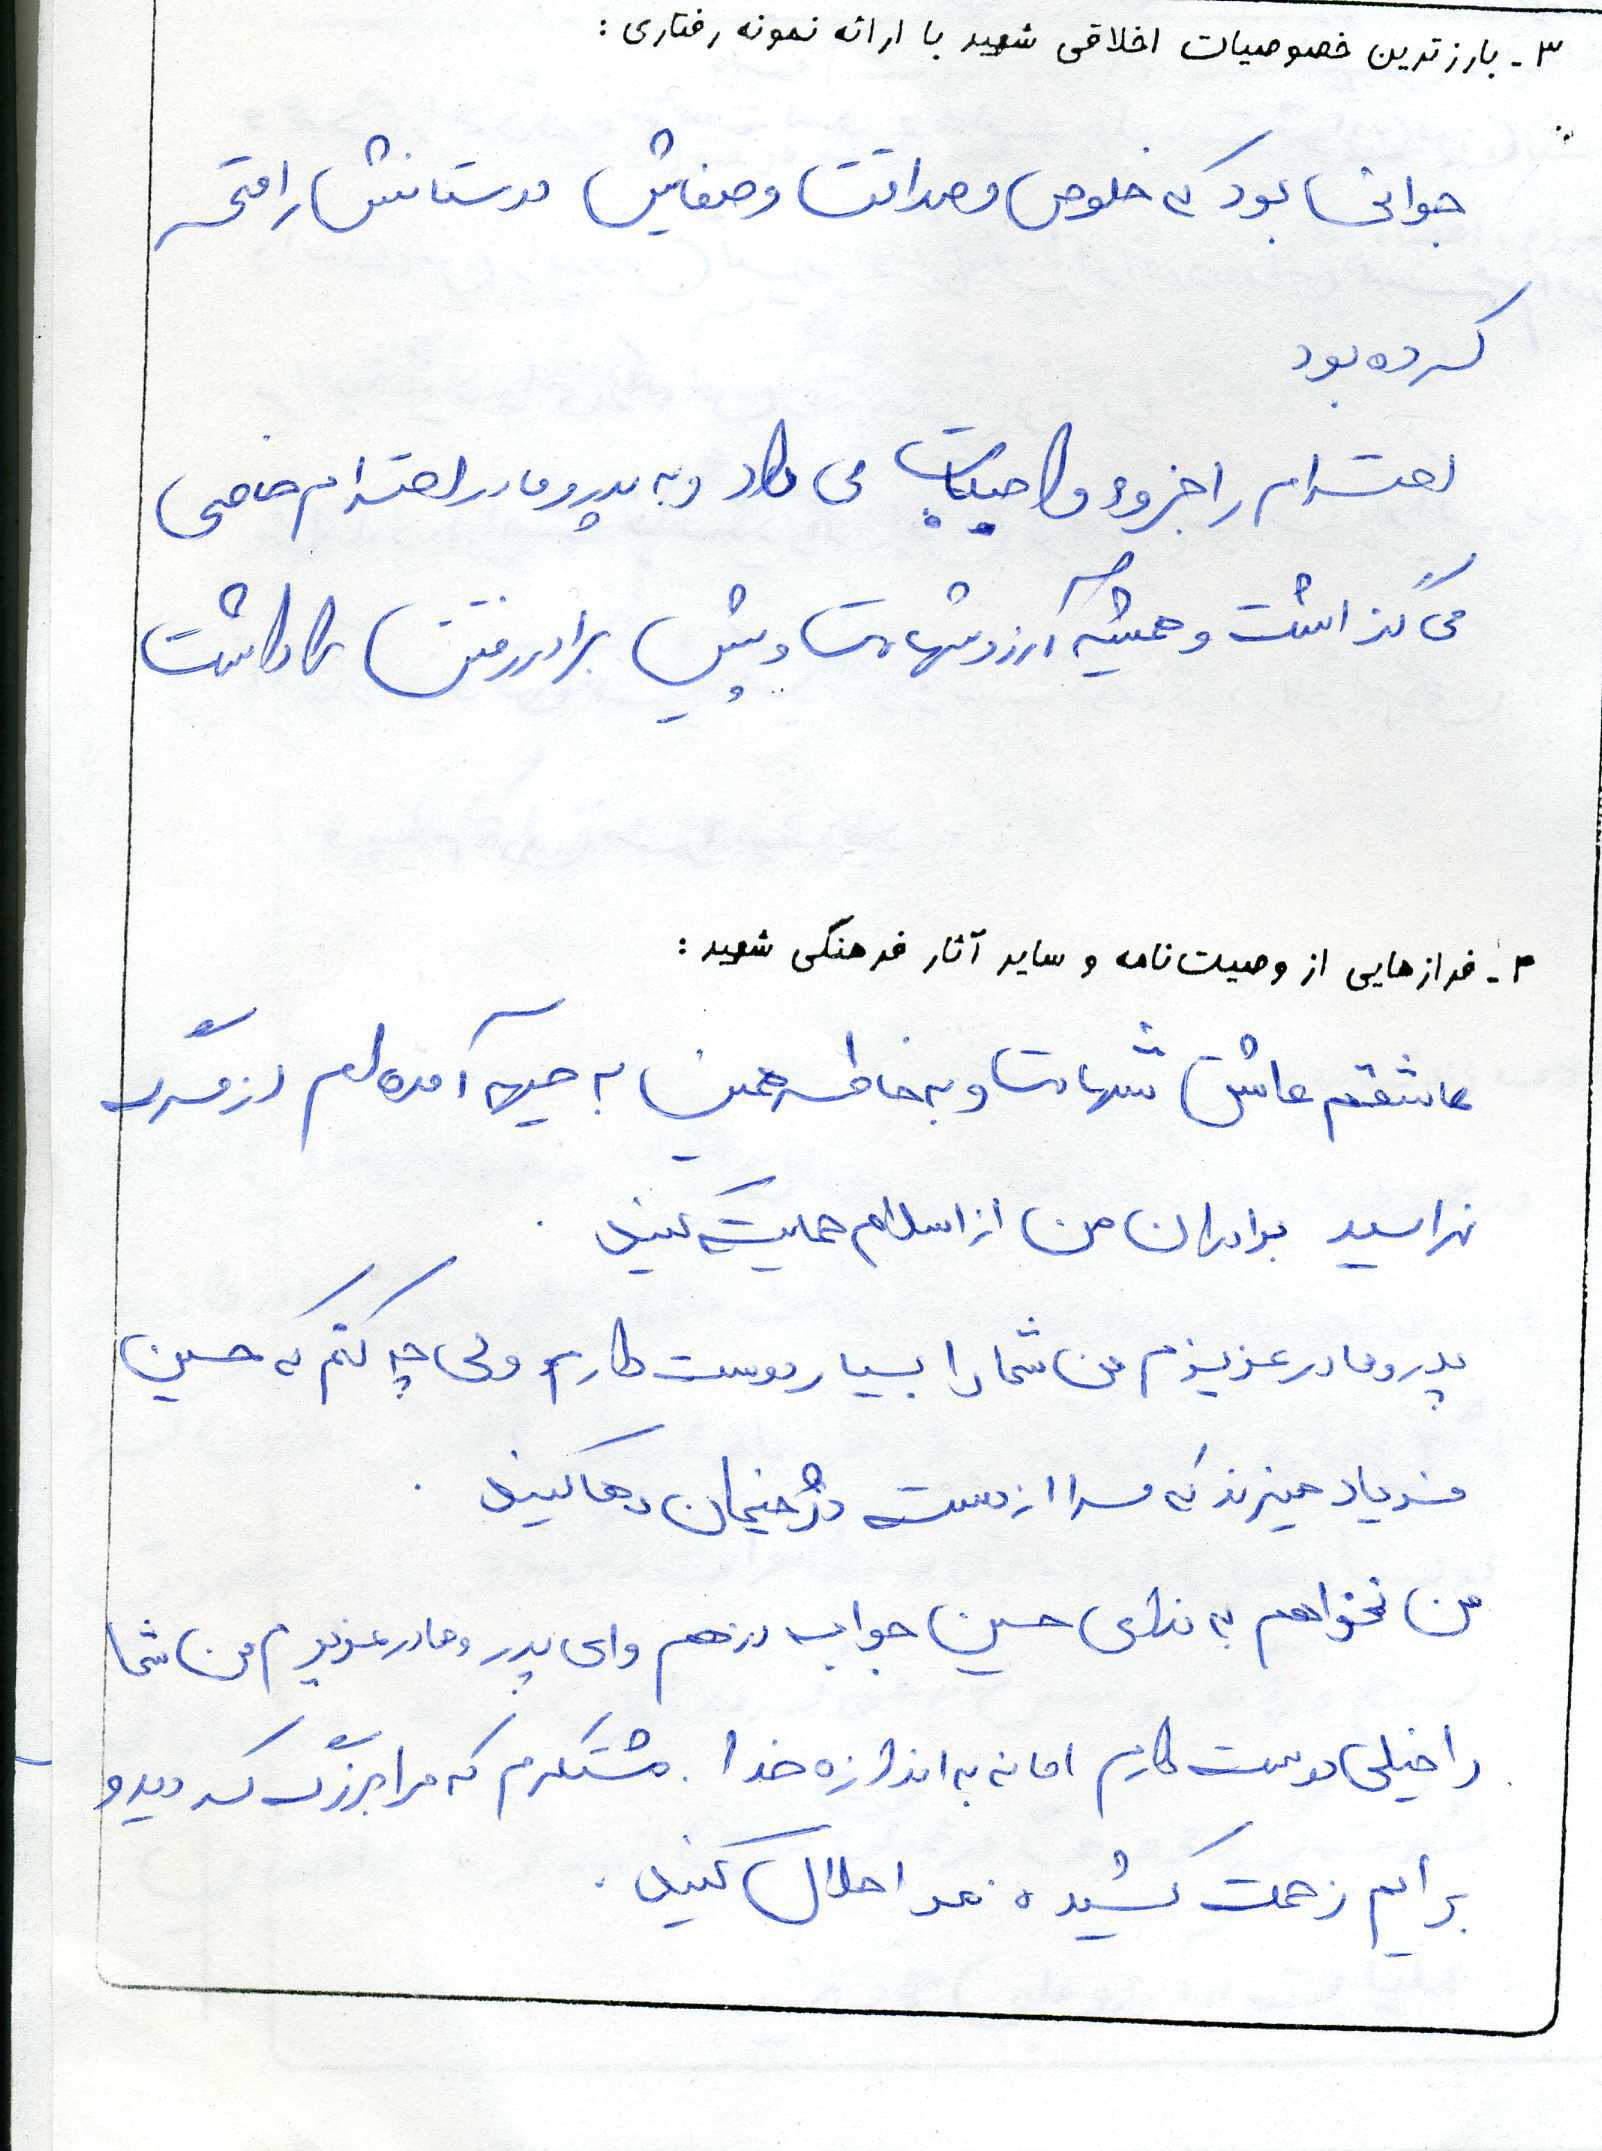 ۳ـ بارزترین خصوصیات اخلاقی شهید با ارائه نمونه رفتاری :
جوانی بود که خلوص و صداقت و صفایش دوستانش را
کرده بود
احترام را جزوء واجبات می داد و به پدر و مادر احترام خاصی
می گذاشت و همیشه آرزو شهادت و پیش برادر رفتن را داشت
۴ـ فرازهایی از وصیت‌نامه و سایر آثار فرهنگی شهید :
عاشقم عاشق شهادت و به خاطر همین به جبهه آمده ام از مرگ
نهراسید برادران من از اسلام حمایت کنید .
پدر و مادر عزیزم من شما را بسیار دوست دارم ولی چه کنم که حسین
فریاد میزند که مرا از دست دژخیمان رها کنید .
من نخواهم به ندای حسین جواب ندهم وای پدر و مادر عزیزم من شما
را خیلی دوست دارم اما نه به اندازه خدا . متشکرم که مرا بزرگ کردید و
برایم زحمت کشیده حلال کنید .